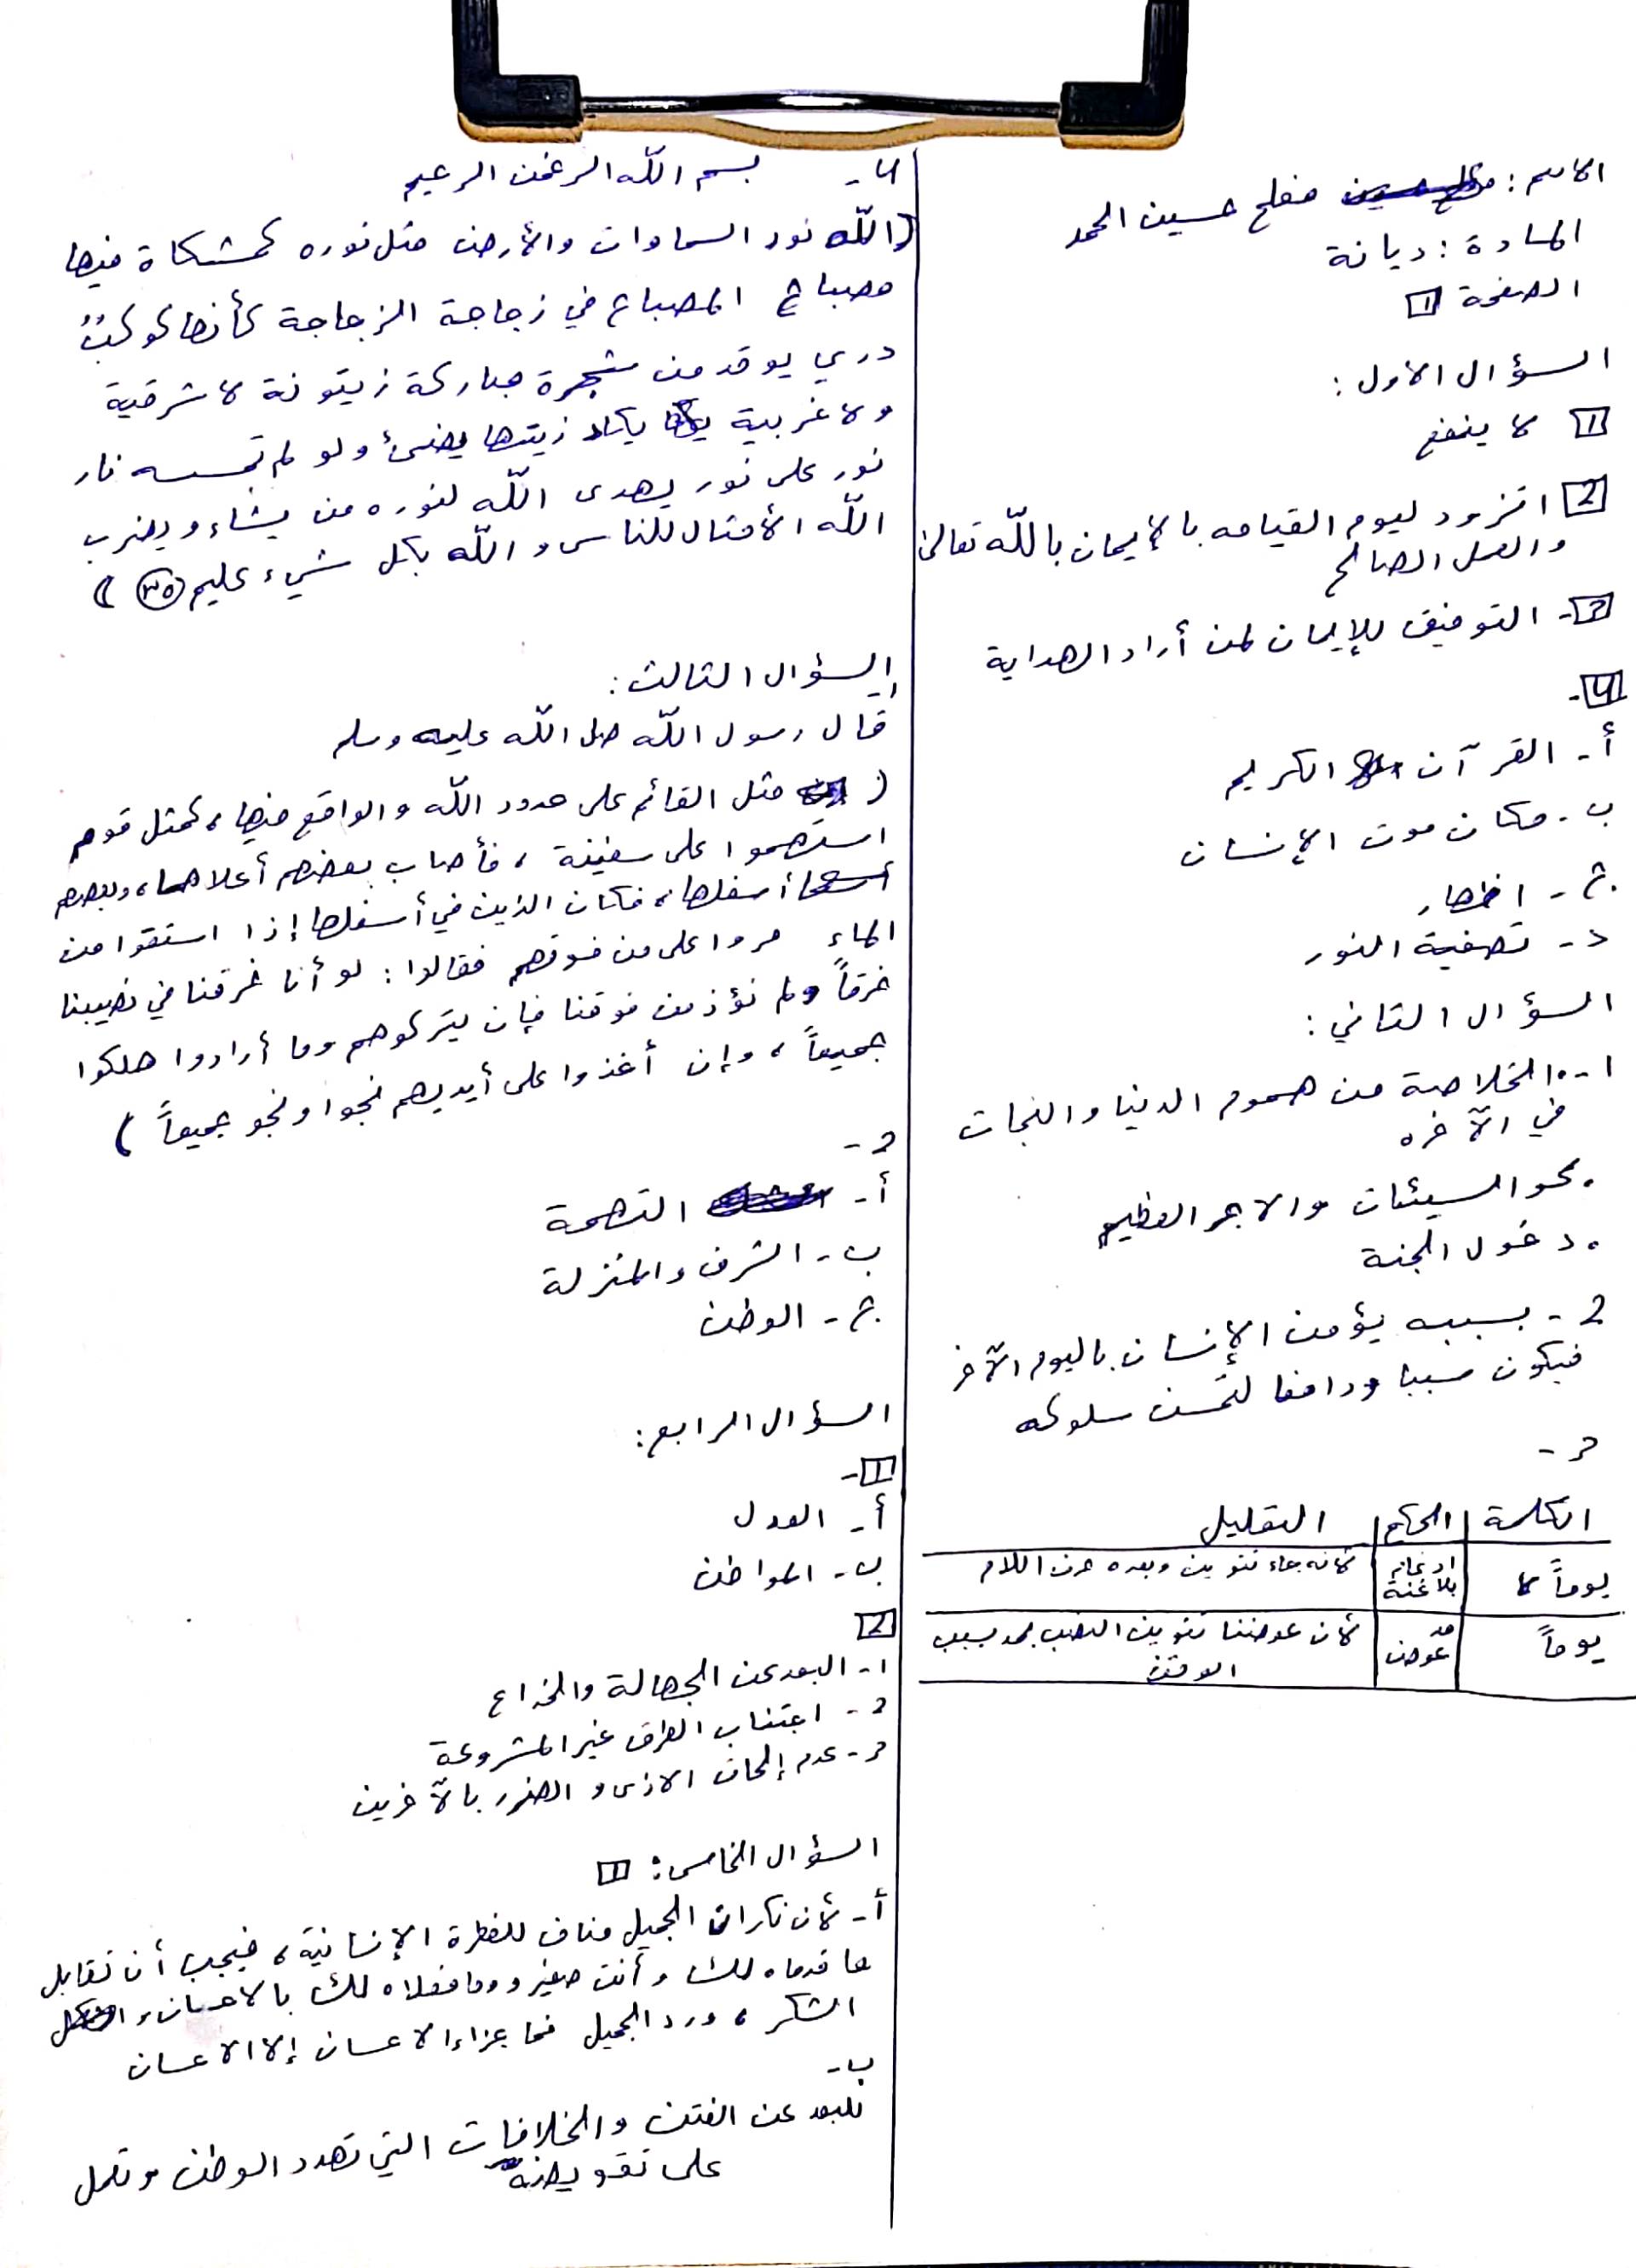 الاسم: مفلح حسين المحمد
المادة: ديانة
الصفحة 1
السؤال الاول:
1 لا ينفع
2 اتزود ليوم القيامه بالإيمان بالله تعالى
والعمل الصالح
3- التوفيق للإيمان لمن أراد الهداية
4-
أ- القرآن الكريم
ب- مكان موت الإنسان
ج- اظهار
د- تصفية النور
السؤال الثاني:
1- • الخلاصة من هموم الدنيا والنجات
في الآخره
• محو السيئات والاجر العظيم
• دخول الجنة
2- بسببه يؤمن الإنسان باليوم الآخر
فيكون سببا ودافعا لتحسن سلوكه
3-
الكلمة | الحكم | التعليل
يوماً لا | ادغام بلا غنة | لأنه جاء تنوين وبعده حرف اللام
يوماً | مد عوض | لأن عوضنا تنوين النصب بمد بسبب
الوقف
4- بسم الله الرحمن الرحيم
(الله نور السماوات والأرض مثل نوره كمشكاة فيها
مصباح المصباح في زجاجة الزجاجة كأنها كوكبٌ
دري يوقد من شجرة مباركة زيتونة لا شرقية
ولا غربية يكاد زيتها يضئ ولو لم تمسسه نار
نور على نور يهدى الله لنوره من يشاء ويضرب
الله الأمثال للناس والله بكل شيء عليم (٣٥) )
السؤال الثالث:
1-
قال رسول الله صلى الله عليه وسلم
( مثل القائم على حدود الله والواقع فيها، كمثل قوم
استهموا على سفينة، فأصاب بعضهم أعلاها، وبعضهم
أسفلها، فكان الذين في أسفلها إذا استقوا من
الماء مروا على من فوقهم فقالوا: لو أنا خرقنا في نصيبنا
خرقاً ولم نؤذ من فوقنا فإن يتركوهم وما أرادوا هلكوا
جميعاً، وإن أخذوا على أيديهم نجوا ونجو جميعاً )
2-
أ- التهمة
ب- الشرف والمنزلة
ج- الوطن
السؤال الرابع:
1-
أ- العدل
ب- المواطن
2
1- البعد عن الجهالة والخداع
2- اجتناب الطرق غير المشروعة
3- عدم إلحاق الاذى و الضرر بالآخرين
السؤال الخامس: 1
أ- لأن نكران الجميل مناف للفطرة الإنسانية، فيجب أن تقابل
ما قدماه لك وأنت صغير وما فعلاه لك بالاحسان و
الشكر، ورد الجميل فما جزاء الاحسان إلا الاحسان
ب-
للبعد عن الفتن والخلافات التي تهدد الوطن وتعمل
على تقويضه